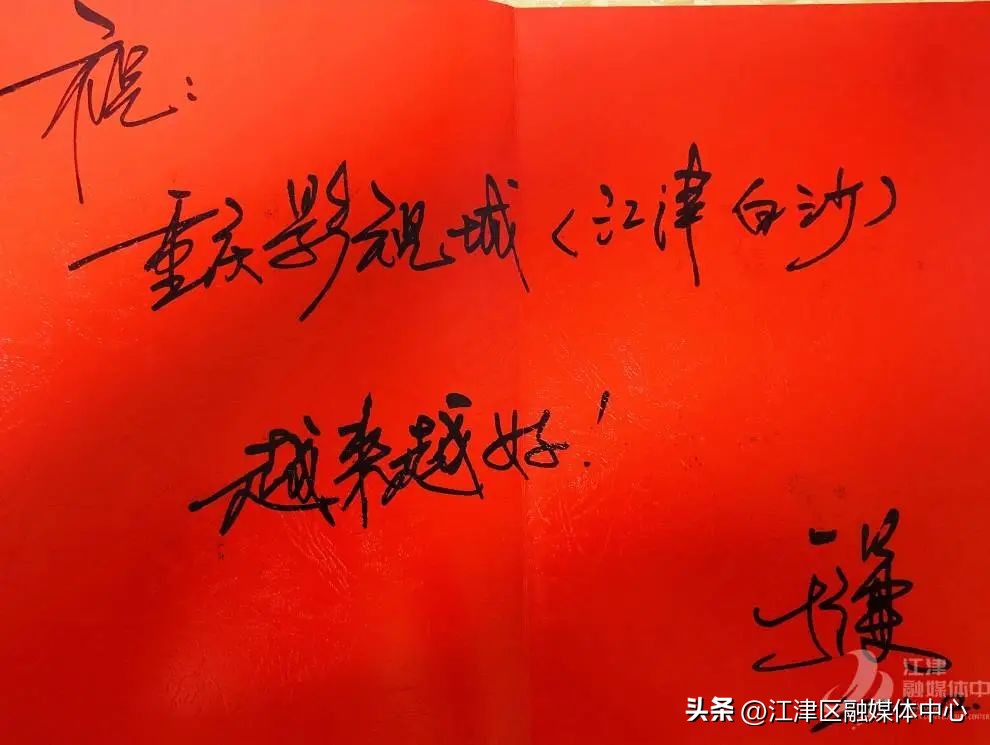 祝:
重庆影视城(江津白沙)
越来越好!
江津
融媒体中
头条 @江津区融媒体中心